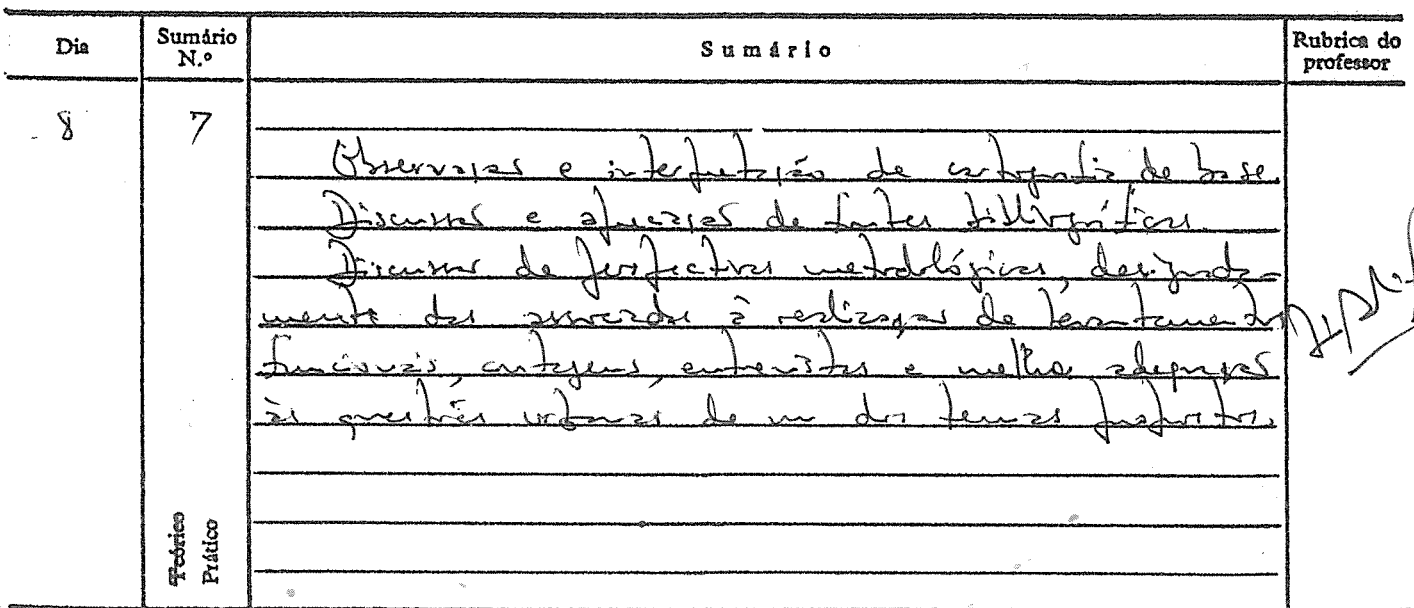 Dia Sumário N.º Sumário Rubrica do professor
8 7
Observação e interpretação de cartografia de base.
Discussão e apreciação de fontes bibliográficas.
Discussão de perspectivas metodológicas, designada-
mente das associadas à realização de levantamentos
funcionais, contagens, entrevistas e melhor adequação
às questões urbanas de um dos temas propostos.
Teórico
Prático